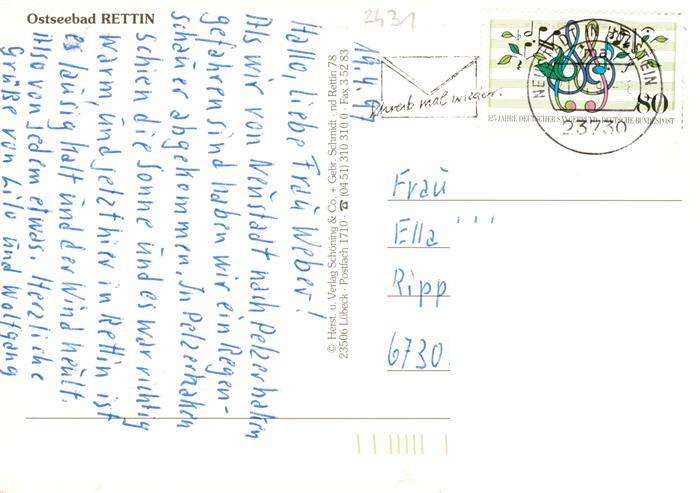 Ostseebad RETTIN
2431
19.4.97
Hallo, liebe Frau Weber!
Als wir von Neustadt nach Pelzerhaken
gefahren sind haben wir ein Regen-
schauer abgekommen. In Pelzerhaken
schien die Sonne und es war richtig
warm, und jetzt hier in Rettin ist
es lausig kalt und der Wind heult.
Also von jedem etwas. Herzliche
Grüße von Lilo und Wolfgang
© Herst. u. Verlag Schöning & Co. + Gebr. Schmidt
23506 Lübeck · Postfach 1710 · ☎ (04 51) 310 310 0 · Fax 3 52 83
und Rettin 78
Schreib mal wieder.
23730
80
125 JAHRE DEUTSCHER SÄNGERBUND DEUTSCHE BUNDESPOST
Frau
Ella ...
Ripp
6730